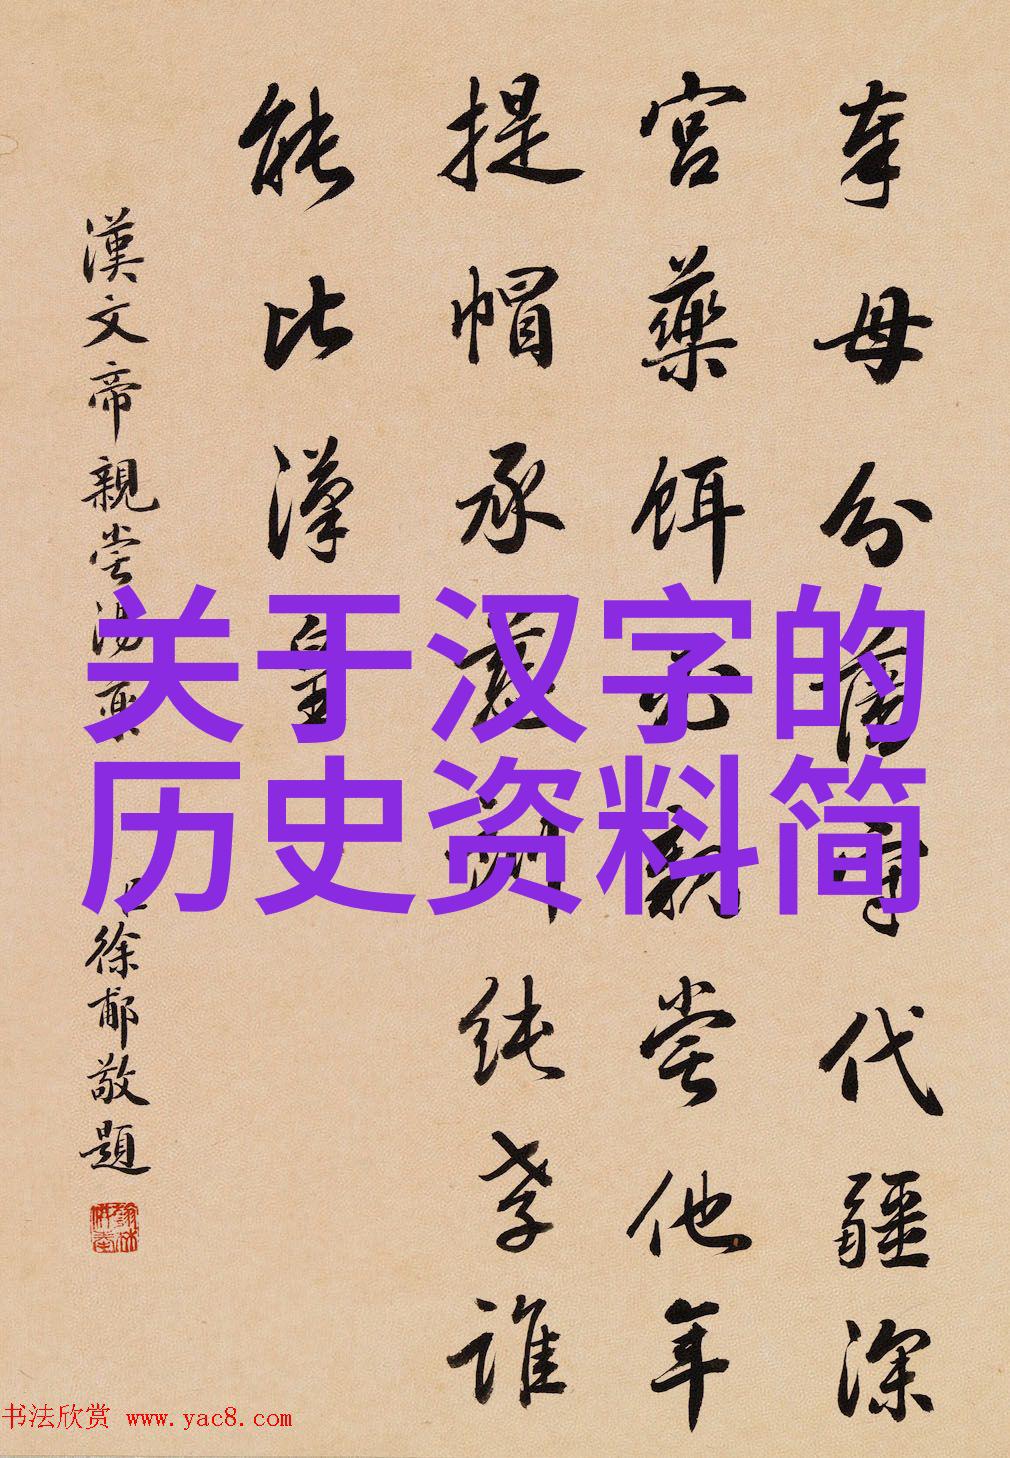 奉母分藩守代疆深
宮藥餌必親嘗他年
提帽承慈訓純孝誰
能比漢皇
漢文帝親嘗湯藥
臣徐郙敬題
关于汉字的
历史资料简
书法欣赏 www.yac8.com